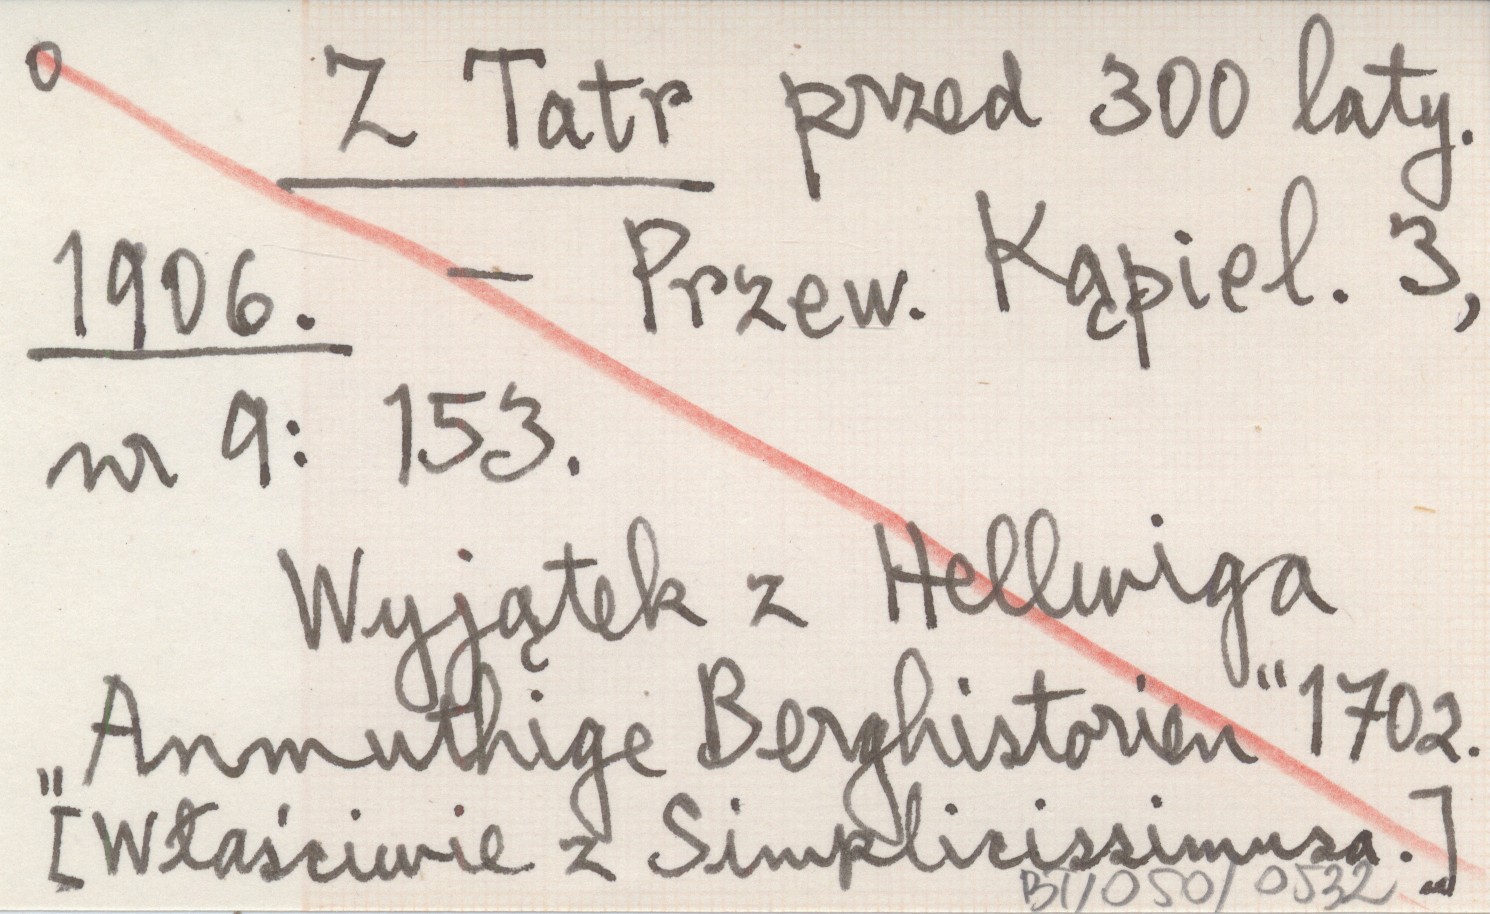 o Z Tatr przed 300 laty.
1906. — Przew. Kąpiel. 3,
nr 9: 153.
Wyjątek z Hellwiga
„Anmuthige Berghistorien“ 1702.
[Właściwie z Simplicissimusa.]
BT/050/0532